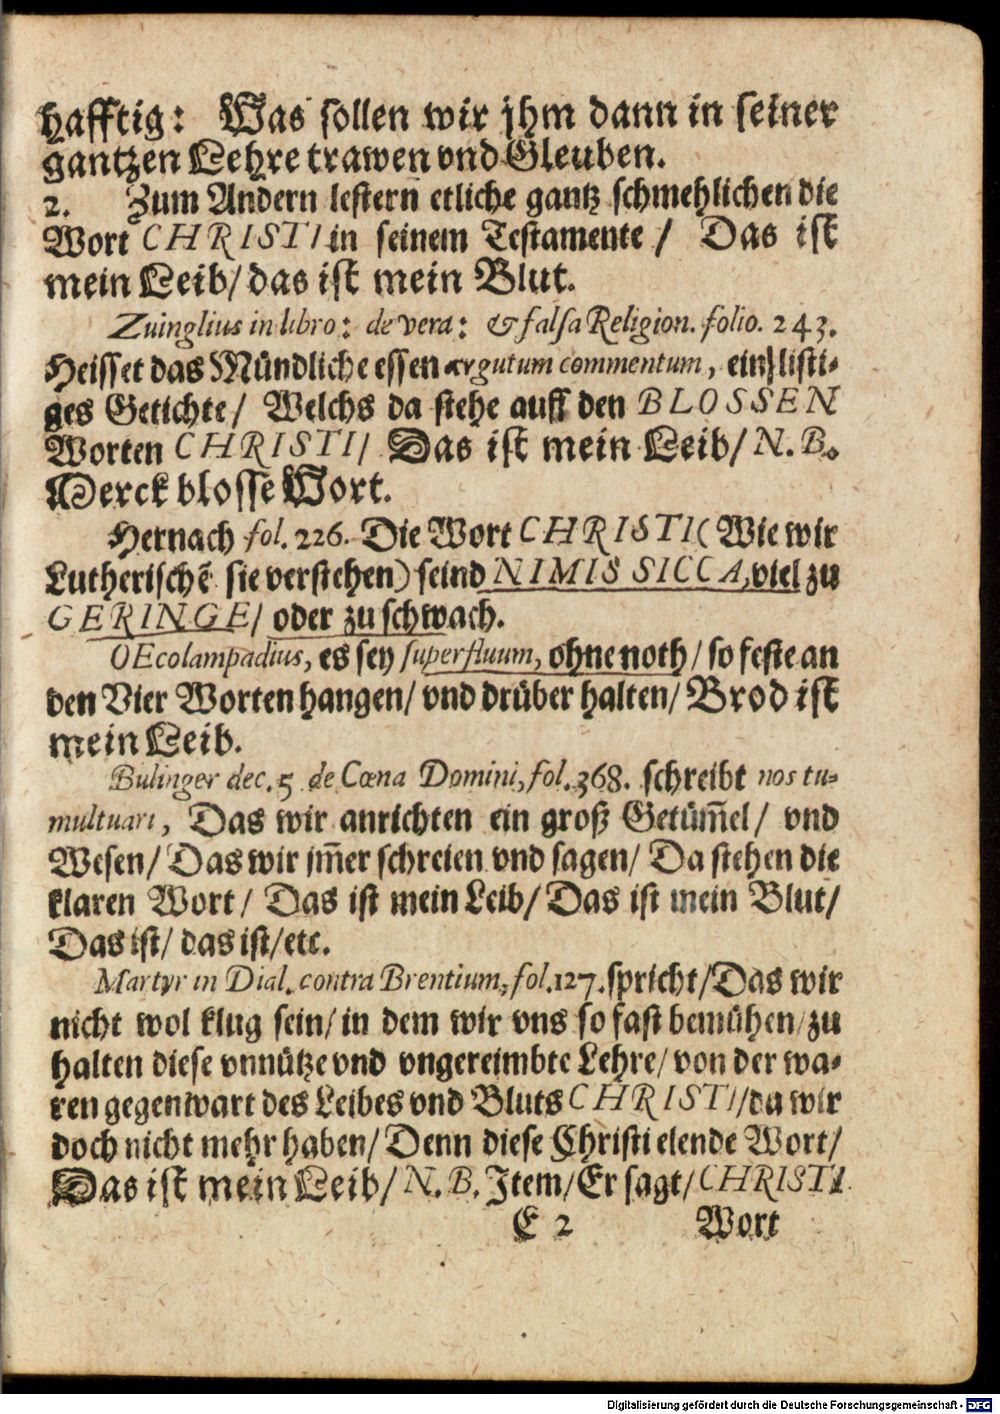 hafftig: Was sollen wir jhm dann in seiner
gantzen Lehre trawen vnd Gleuben.
2. Zum Andern lestern etliche gantz schmehlichen die
Wort CHRISTI in seinem Testamente / Das ist
mein Leib/ das ist mein Blut.
Zuinglius in libro: de vera: & falsa Religion. folio. 243.
Heisset das Mündliche essen argutum commentum, ein listi-
ges Getichte/ Welchs da stehe auff den BLOSSEN
Worten CHRISTI/ Das ist mein Leib/ N. B.
Merck blosse Wort.
Hernach fol. 226. Die Wort CHRISTI (Wie wir
Lutherischē sie verstehen) seind NIMIS SICCA, viel zu
GERINGE/ oder zu schwach.
OEcolampadius, es sey superfluum, ohne noth/ so feste an
den Vier Worten hangen/ vnd drüber halten/ Brod ist
mein Leib.
Bulinger dec. 5 de Cœna Domini, fol. 368. schreibt nos tu-
multuari, Das wir anrichten ein groß Getüm̃el/ vnd
Wesen/ Das wir jm̃er schreien vnd sagen/ Da stehen die
klaren Wort/ Das ist mein Leib/ Das ist mein Blut/
Das ist/ das ist/ etc.
Martyr in Dial. contra Brentium, fol. 127. spricht/ Das wir
nicht wol klug sein/ in dem wir vns so fast bemühen/ zu
halten diese vnnütze vnd vngereimbte Lehre/ von der wa-
ren gegenwart des Leibes vnd Bluts CHRISTI/ da wir
doch nicht mehr haben/ Denn diese Christi elende Wort/
Das ist mein Leib/ N. B. Jtem/ Er sagt/ CHRISTI
E 2 Wort
Digitalisierung gefördert durch die Deutsche Forschungsgemeinschaft - DFG